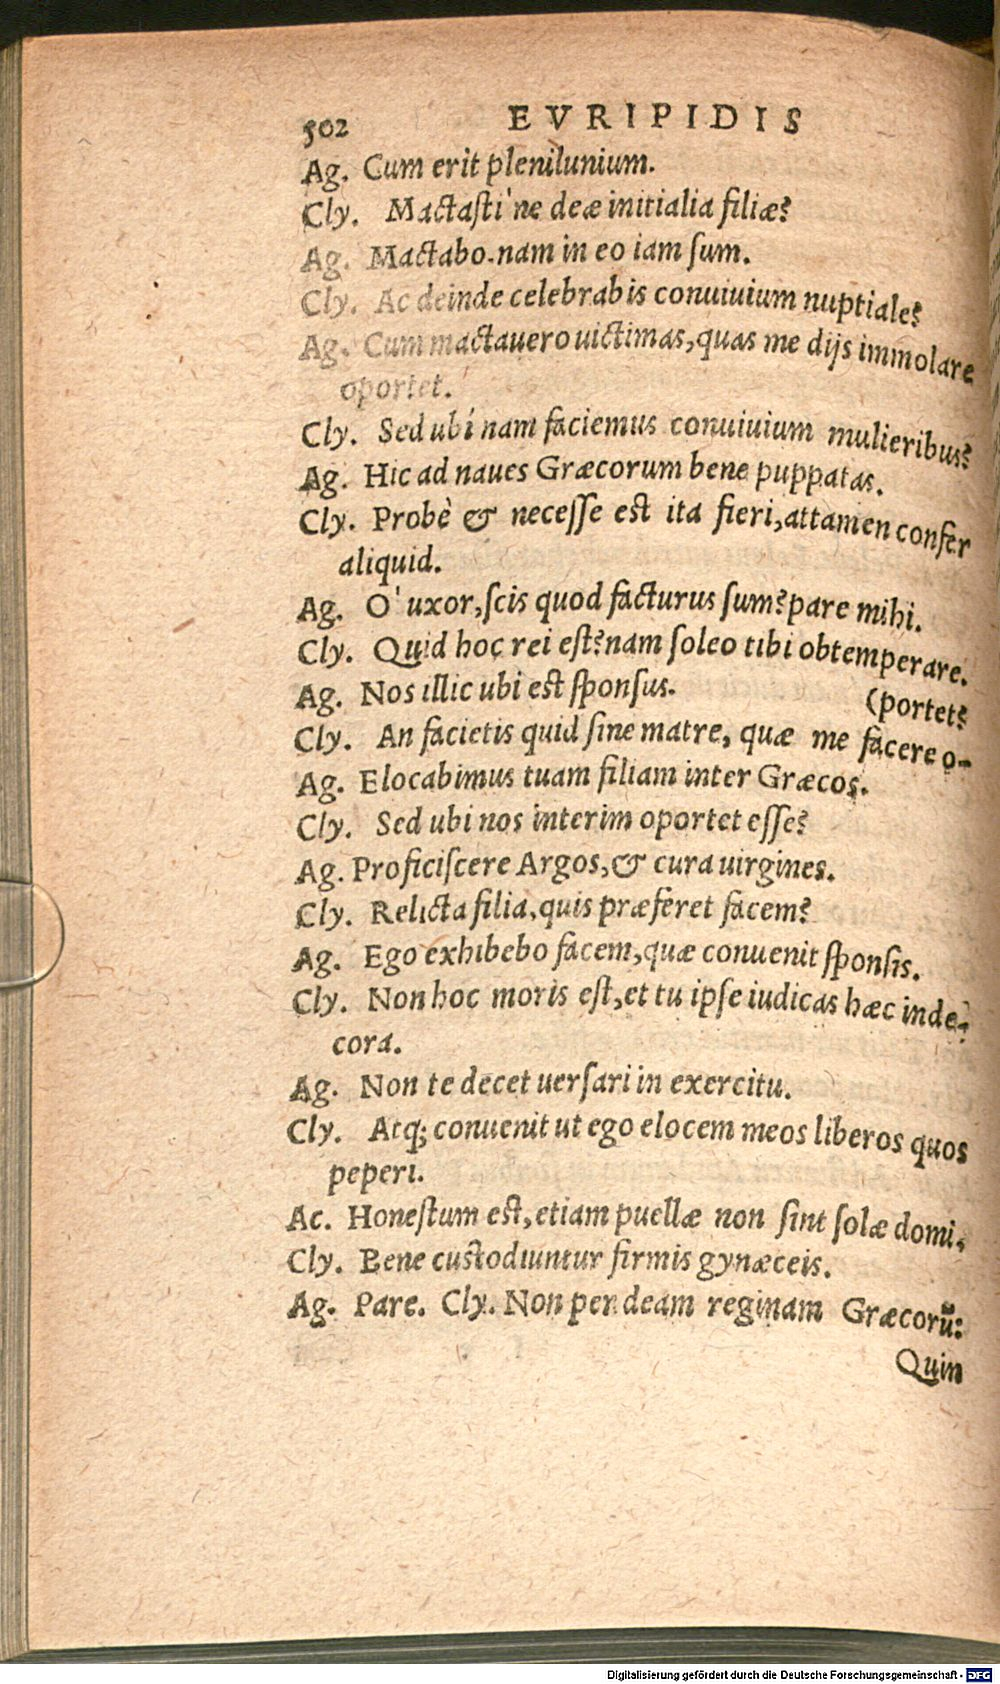 502 EVRIPIDIS
Ag. Cum erit plenilunium.
Cly. Mactasti'ne deæ initialia filiæ?
Ag. Mactabo. nam in eo iam sum.
Cly. Ac deinde celebrabis conuiuium nuptiale?
Ag. Cum mactauero uictimas, quas me dijs immolare
oportet.
Cly. Sed ubi nam faciemus conuiuium mulieribus?
Ag. Hic ad naues Græcorum bene puppatas.
Cly. Probè & necesse est ita fieri, attamen confer
aliquid.
Ag. O' uxor, scis quod facturus sum? pare mihi.
Cly. Quid hoc rei est? nam soleo tibi obtemperare.
Ag. Nos illic ubi est sponsus. (portet?
Cly. An facietis quid sine matre, quæ me facere o-
Ag. Elocabimus tuam filiam inter Græcos.
Cly. Sed ubi nos interim oportet esse?
Ag. Proficiscere Argos, & cura uirgines.
Cly. Relicta filia, quis præferet facem?
Ag. Ego exhibebo facem, quæ conuenit sponsis.
Cly. Non hoc moris est, et tu ipse iudicas hæc inde-
cora.
Ag. Non te decet uersari in exercitu.
Cly. Atq; conuenit ut ego elocem meos liberos quos
peperi.
Ac. Honestum est, etiam puellæ non sint solæ domi.
Cly. Bene custodiuntur firmis gynæceis.
Ag. Pare. Cly. Non per deam reginam Græcorū:
Quin
Digitalisierung gefördert durch die Deutsche Forschungsgemeinschaft - DFG